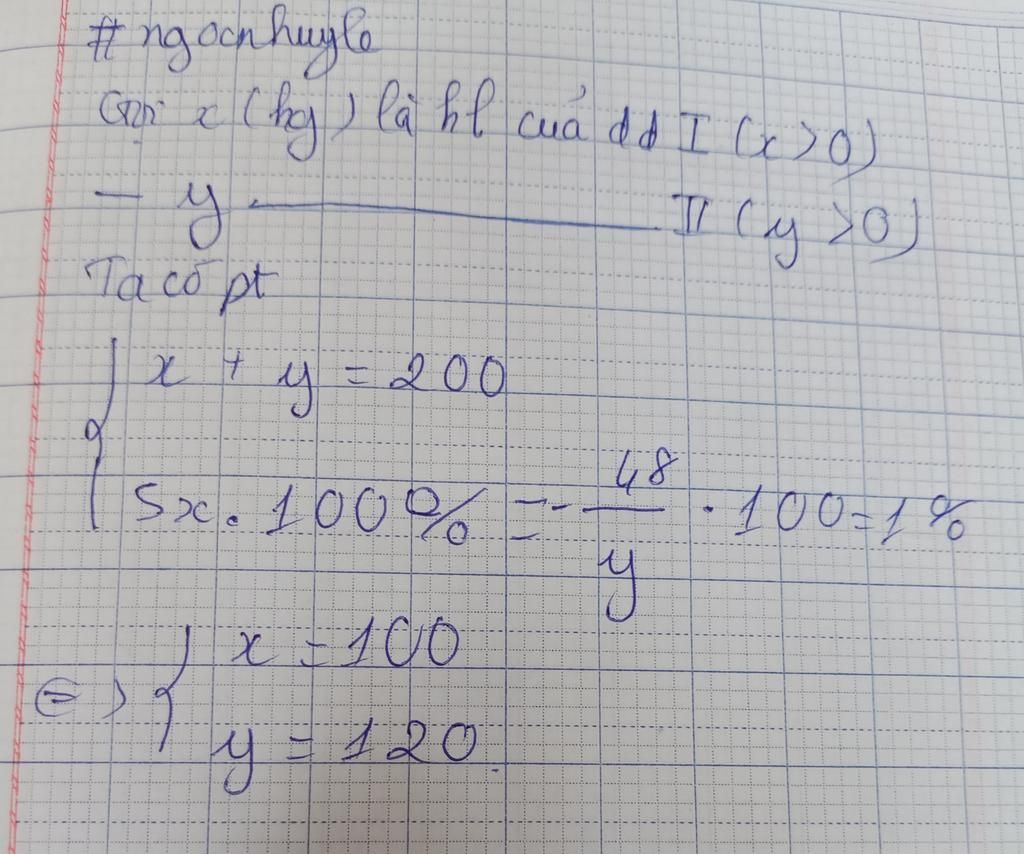 #ngocnhuyle
Gọi x (kg) là kl của dd I (x > 0)
- y ——— II (y > 0)
Ta có pt
x + y = 200
5x . 100% = - 48/y . 100 = 1%
<=> { x = 100
y = 120